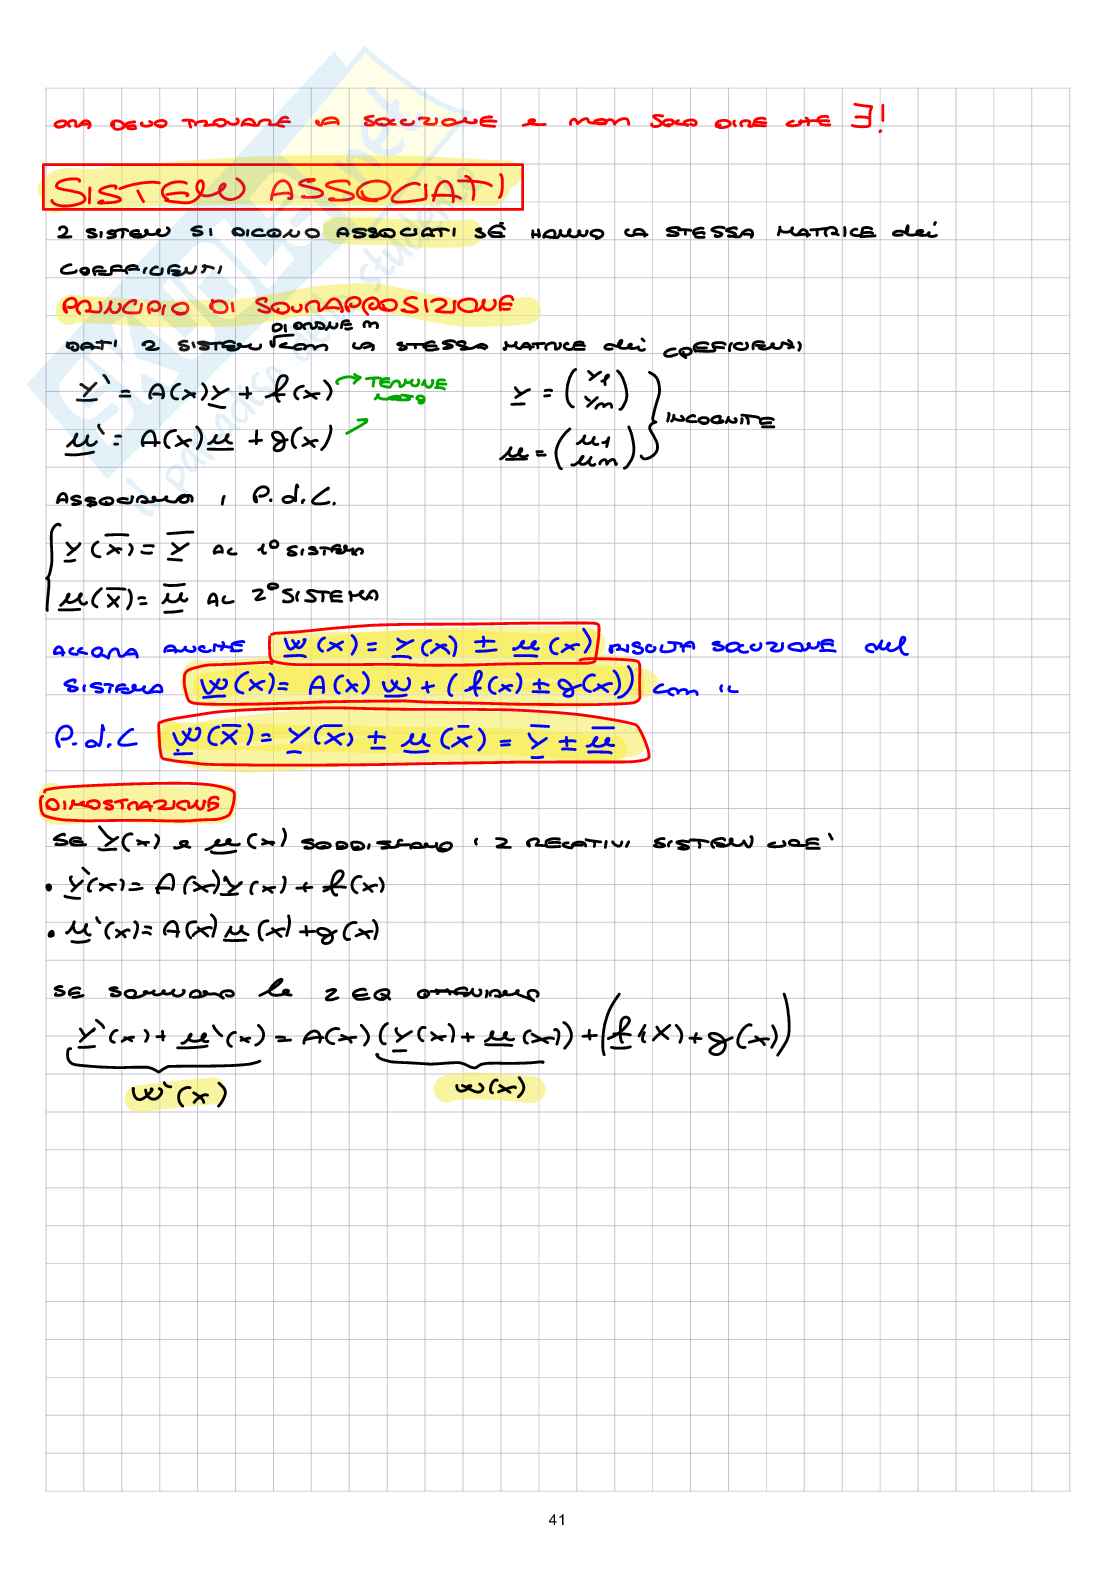 ORA DEVO TROVARE LA SOLUZIONE e non SOLO DIRE CHE ∃!
SISTEMI ASSOCIATI
2 SISTEMI SI DICONO ASSOCIATI SE HANNO LA STESSA MATRICE dei
COEFFICIENTI
PRINCIPIO DI SOVRAPPOSIZIONE
DI ORDINE n
DATI 2 SISTEMI √ con LA STESSA MATRICE dei COEFFICIENTI
y' = A(x)y + f(x) → TERMINE NOTO
y = (y1 yn)
u' = A(x)u + g(x)
u = (u1 un)
INCOGNITE
ASSOCIAMO i P.d.C.
y(x̄) = ȳ AL 1° SISTEMA
u(x̄) = ū AL 2° SISTEMA
ALLORA ANCHE w(x) = y(x) ± u(x) RISULTA SOLUZIONE del
SISTEMA w(x) = A(x) w + (f(x) ± g(x)) con IL
P.d.C w(x̄) = y(x̄) ± u(x̄) = ȳ ± ū
DIMOSTRAZIONE
SE y(x) e u(x) SODDISFANO i 2 RELATIVI SISTEMI CIOE'
• y'(x) = A(x)y(x) + f(x)
• u'(x) = A(x)u(x) + g(x)
SE SOMMIAMO le 2 EQ OTTENIAMO
y'(x) + u'(x) = A(x)(y(x) + u(x)) + (f(x) + g(x))
w'(x) w(x)
41